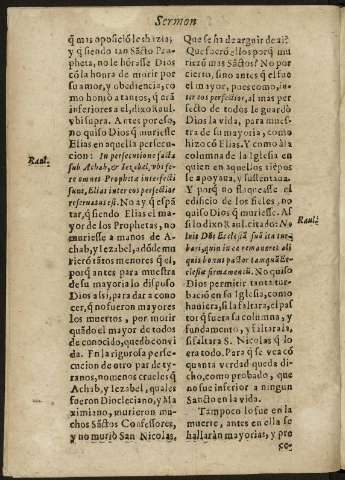 Sermon
q̃ mas oposiciõ les hazia;
y q siendo tan Sãcto Pro-
pheta, no le hõrasse Dios
cõ la honra de morir por
su amor, y obediencia, co
mo honrò a tantos, q erã
inferiores a el, dixo Raul.
vbi supra. Antes por esso,
no quiso Dios q̃ muriesse
Elias en aquella persecu-
cion: In persecutione facta
Raul.
sub Achab, & Iezabel, vbi fe-
re omnes Propheta interfecti
sunt, Elias inter eos perfectior
reseruatus est. No ay q espã
tar, q̃ siendo Elias el ma-
yor de los Prophetas, no
muriesse a manos de A-
chab, y Iezabel, adõde mu
rierõ tãtos menores q el,
porq̃ antes para muestra
de su mayoria lo dispuso
Dios assi, para dar a cono-
cer, q no fueron mayores
los muertos, por morir
quãdo el mayor de todos
de conocido, quedò con vi
da. En la rigurosa perse-
cucion de otro par de ty-
ranos, no menos crueles q̃
Achab, y Iezabel, quales
fueron Diocleciano, y Ma
ximiano, murieron mu-
chos Sãctos Confessores,
y no muriò San Nicolas.
Que se ha de arguir de aì?
Que fuerõ ellos porq̃ mu
rierõ mas Sãctos? No por
cierto, sino antes q el fue
el mayor, pues como, in-
ter eos perfectior, al mas per
fecto de todos le guardò
Dios la vida, para mues-
tra de su mayoria, como
hizo cõ Elias. Y como à la
columna de la Iglesia en
quien en aquellos tiẽpos
se apoyaua, y sustentaua.
Y porq̃ no flaqueasse el
edificio de los fieles, no
quiso Dios q̃ muriesse. As
Raul.
si lo dixo Raul. citado: No
luit Dñs Ecclesiã suã ita tur-
bari, quin in ea remaneret ali
quis bonus pastor tamquã Ec-
clesiæ firmamentũ. No quiso
Dios permitir tanta tur-
baciõ en su Iglesia, como
huuiera, si la faltara, el pas
tor q̃ fuera su columna, y
fundamento, y faltarala,
si faltara S. Nicolas q̃ lo
era todo. Para q̃ se vea cõ
quanta verdad queda di-
cho, como probado, que
no fue inferior a ningun
Sancto en la vida.
Tampoco lo fue en la
muerte, antes en ella se
hallaràn mayorias, y pre